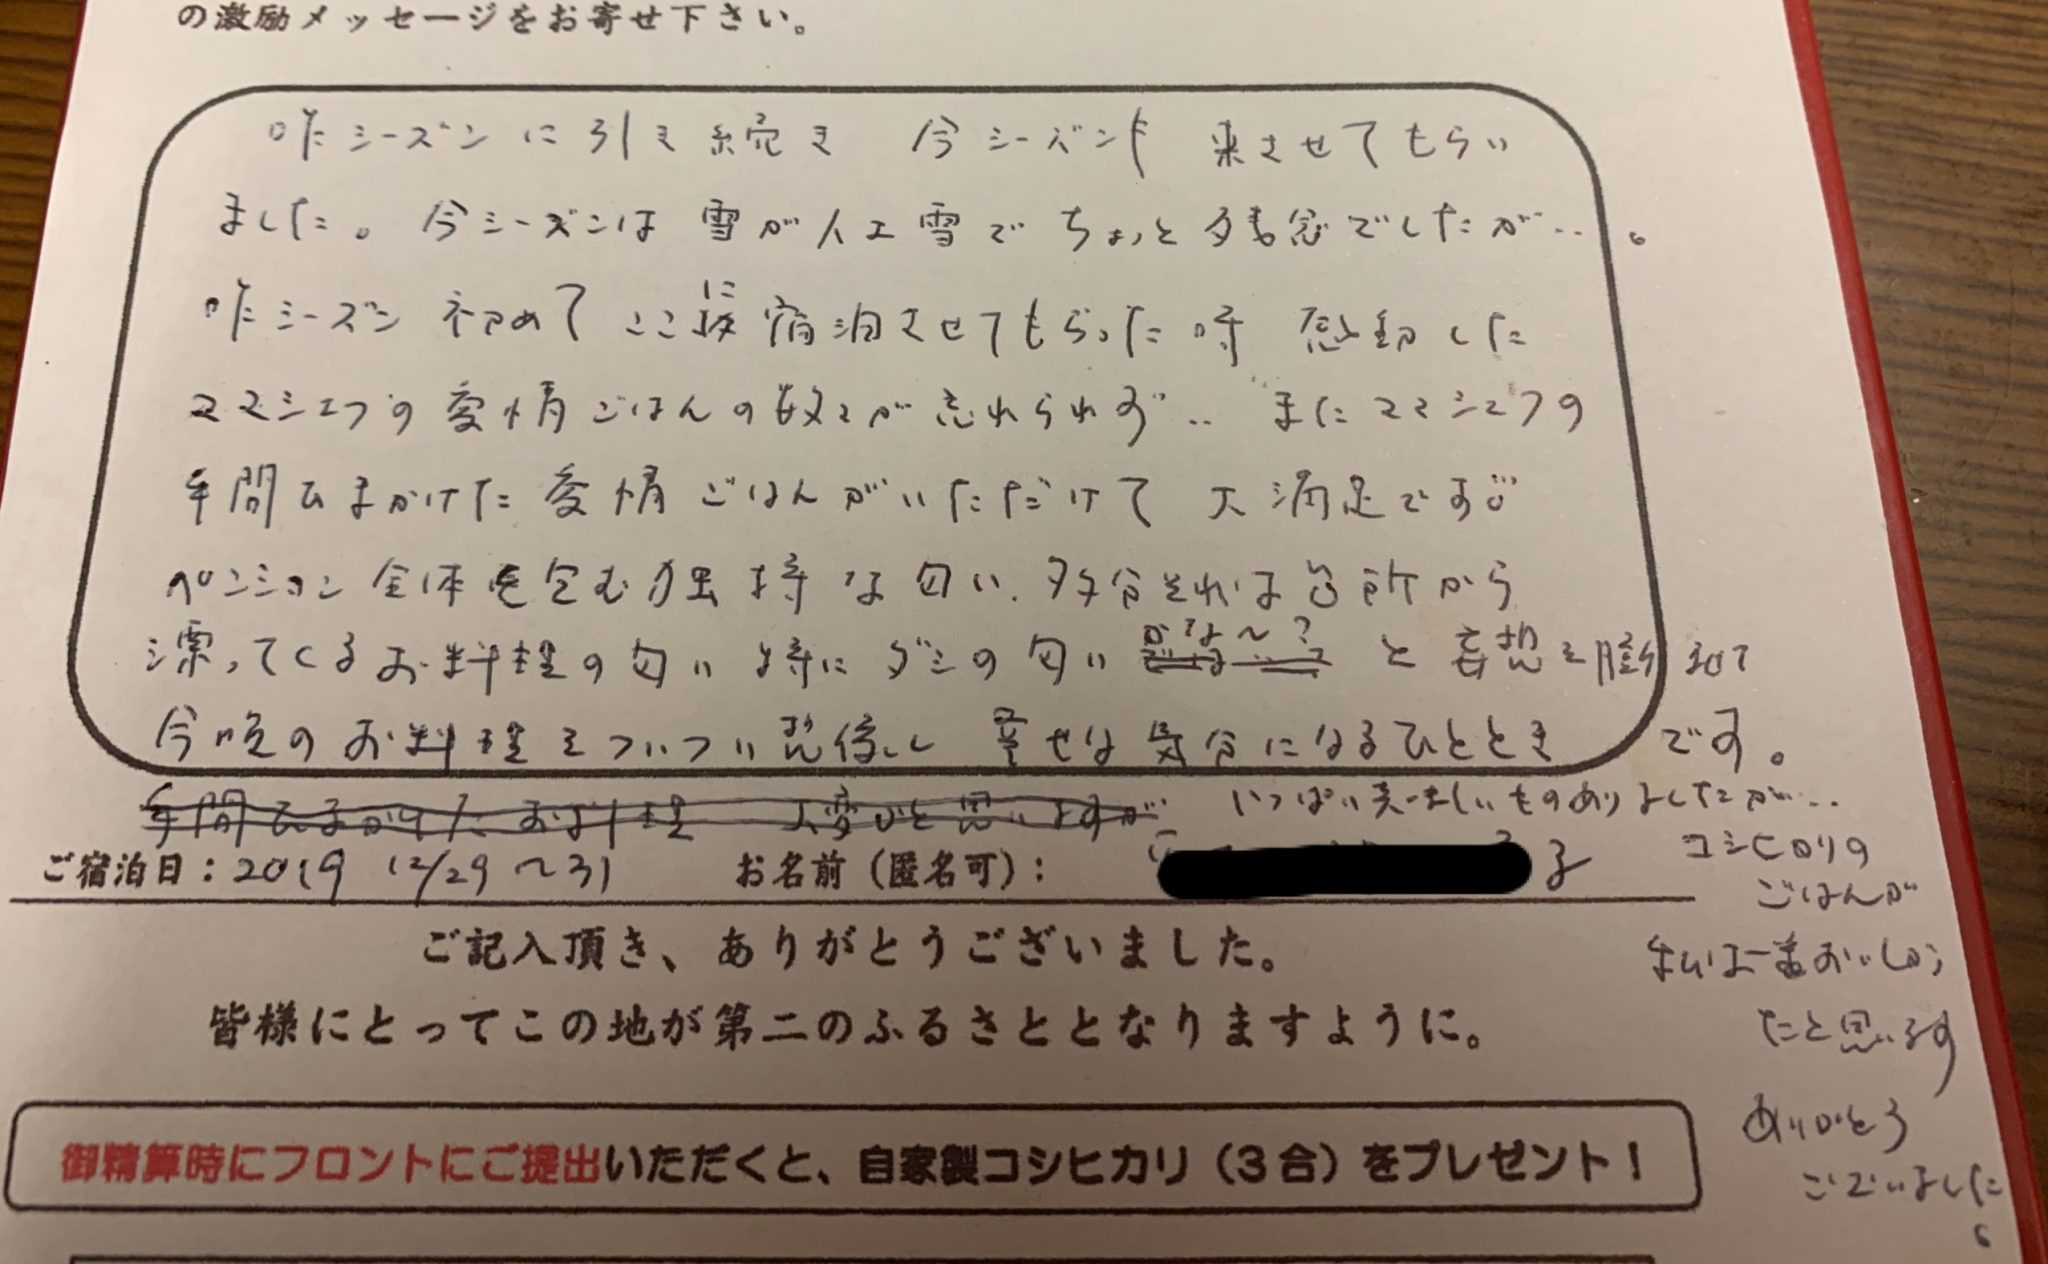 の激励メッセージをお寄せ下さい。
昨シーズンに引き続き 今シーズンも 来させてもらい
ました。今シーズンは雪が人工雪でちょっと残念でしたが‥。
昨シーズン 初めて ここに宿泊させてもらった時 感動した
ママシェフの愛情ごはんの数々が忘れられず‥ またママシェフの
手間ひまかけた愛情ごはんがいただけて 大満足です
ペンション全体を包む独特な匂い、多分それは台所から
漂ってくるお料理の匂い 特にダシの匂い かな〜? と妄想を膨ませて
今晩のお料理をついつい想像し 幸せな気分になるひとときです。
手間ひまかけたお料理 大変だと思いますが
いっぱい美味しいものありましたが‥
ご宿泊日：2019 12/29 〜31 お名前（匿名可）： 子
コシヒカリの
ごはんが
私は一番おいしかっ
たと思います
ありがとう
ございました。
ご記入頂き、ありがとうございました。
皆様にとってこの地が第二のふるさととなりますように。
御精算時にフロントにご提出いただくと、自家製コシヒカリ（3合）をプレゼント！